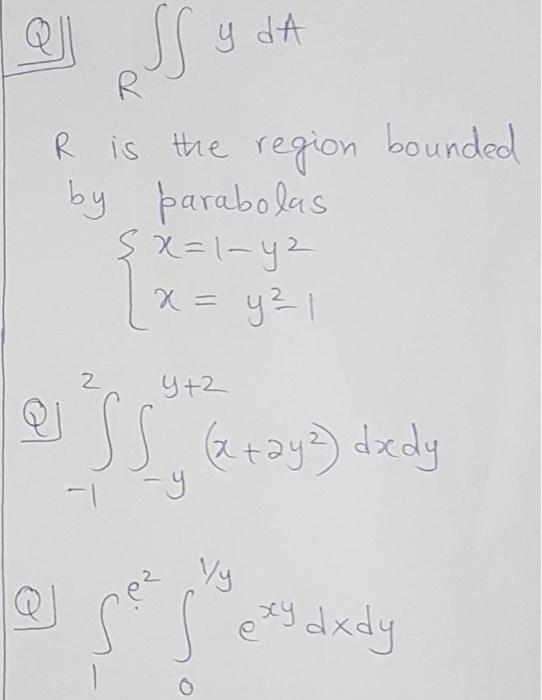 Q] ∬_R y dA
R is the region bounded
by parabolas
{ x = 1 - y²
x = y² - 1
Q] ∫_{-1}^{2} ∫_{-y}^{y+2} (x + 2y²) dxdy
Q] ∫_{1}^{e²} ∫_{0}^{1/y} e^{xy} dxdy